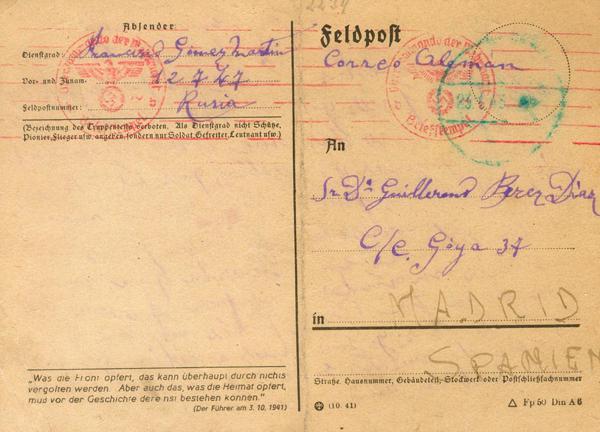 2239
Absender
Dienstgrad: Gomez Martin
Vor- und Zunam- 12747
Feldpostnummer: Rusia
(Bezeichnung des Truppenteils verboten. Als Dienstgrad nicht Schütze,
Pionier, Flieger usw. angeben, sondern nur Soldat, Gefreiter, Leutnant usw.)
„Was die Front opfert, das kann überhaupt durch nichts
vergolten werden. Aber auch das, was die Heimat opfert,
muß vor der Geschichte dereinst bestehen können."
(Der Führer am 3. 10. 1941)
Feldpost
Correo Aleman
Briefstempel
An
Sr. Dn Guillermo Perez Diaz
C/C. Goya 37
in MADRID
SPANIEN
Straße, Hausnummer, Gebäudeteil, Stockwerk oder Postschließfachnummer
(10. 41)
△ Fp 50 Din A 6